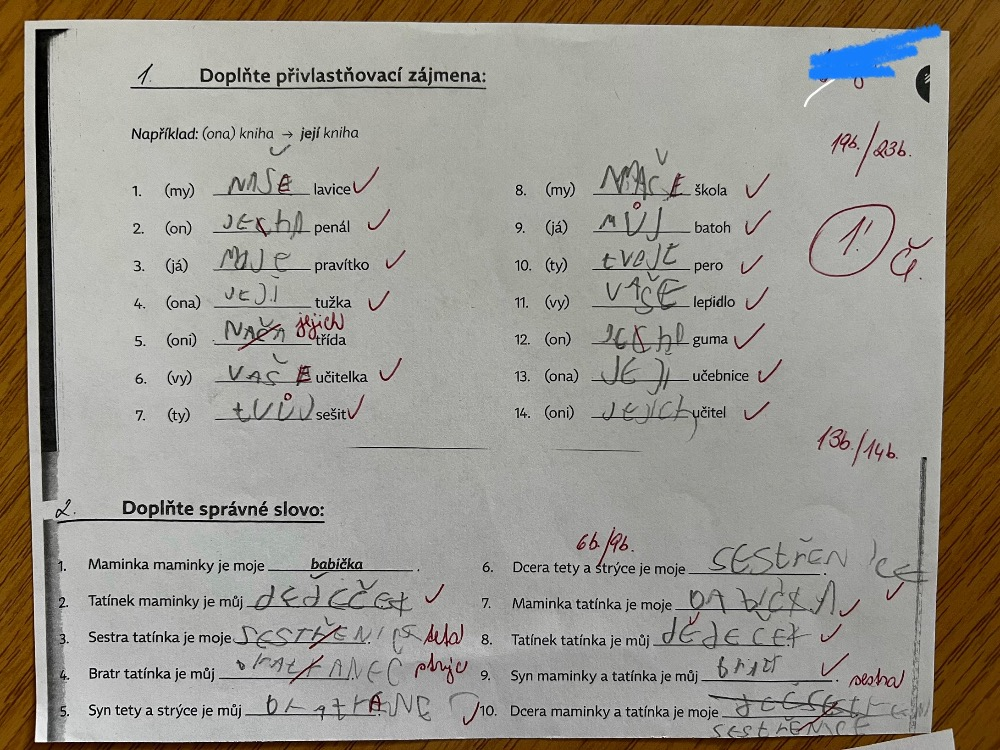 1. Doplňte přivlastňovací zájmena:
Například: (ona) kniha → její kniha
19b./23b.
1. (my) NAŠE lavice
2. (on) JEHO penál
3. (já) MOJE pravítko
4. (ona) JEJÍ tužka
5. (oni) NAČA jejich třída
6. (vy) VAŠE učitelka
7. (ty) tVŮJ sešit
8. (my) NAŠE škola
9. (já) MŮJ batoh
10. (ty) tVOJE pero
11. (vy) VAŠE lepidlo
12. (on) JEHO guma
13. (ona) JEJÍ učebnice
14. (oni) JEJICH učitel
1! Č.
13b./14b.
2. Doplňte správné slovo:
6b./9b.
1. Maminka maminky je moje babička .
2. Tatínek maminky je můj
3. Sestra tatínka je moje SESTŘENICE teta
4. Bratr tatínka je můj bratRANEC strýc
5. Syn tety a strýce je můj
6. Dcera tety a strýce je moje SESTŘENICE .
7. Maminka tatínka je moje
8. Tatínek tatínka je můj DĚDEČEK
9. Syn maminky a tatínka je můj bratr .
10. Dcera maminky a tatínka je moje sestra